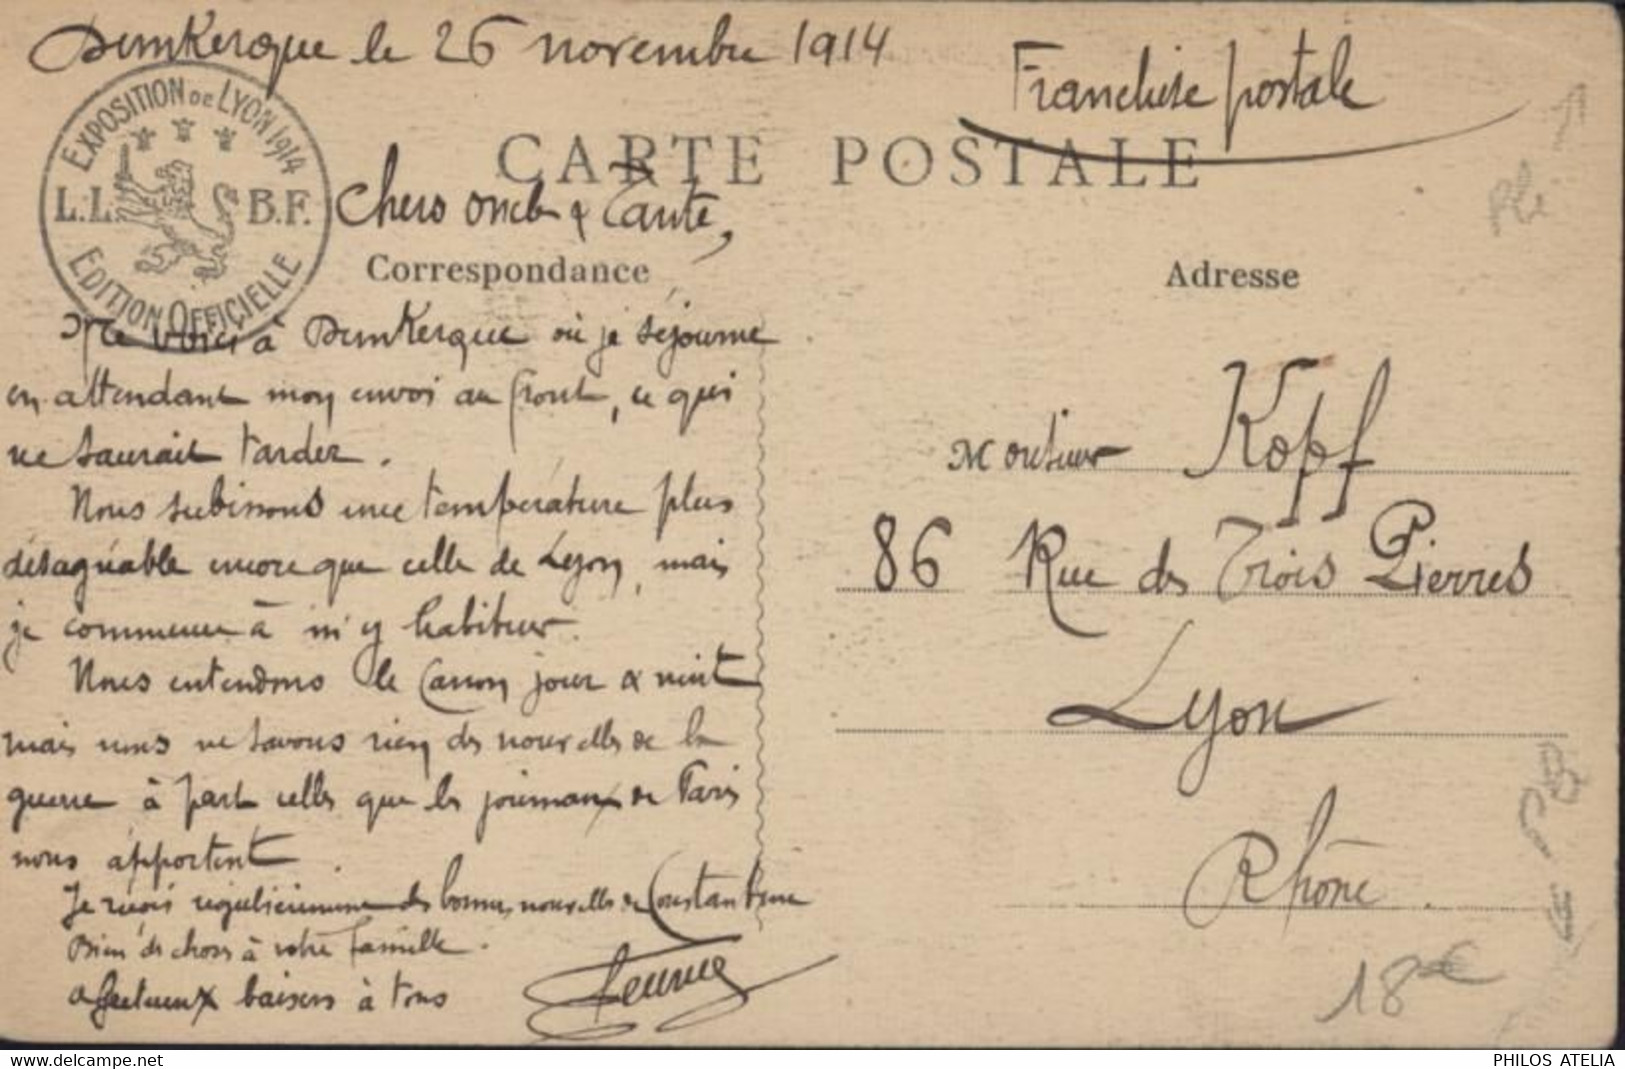 Dunkerque le 26 novembre 1914
Franchise postale
EXPOSITION DE LYON 1914
L.L. B.F.
EDITION OFFICIELLE
CARTE POSTALE
Chers Oncle & Tante,
Correspondance
Adresse
Me voici à Dunkerque où je séjourne
en attendant mon envoi au front, ce qui
ne saurait tarder.
Nous subissons une température plus
désagréable encore que celle de Lyon, mais
je commence à m'y habituer.
Nous entendons le Canon jour & nuit
mais nous ne savons rien des nouvelles de la
guerre à part celles que les journaux de Paris
nous apportent.
Je reçois régulièrement des bonnes nouvelles de Constantine
Bien des choses à votre famille.
affectueux baisers à tous
Monsieur Kopf
86 Rue des Trois Pierres
Lyon
Rhône.
18€
www.delcampe.net
PHILOS ATELIA